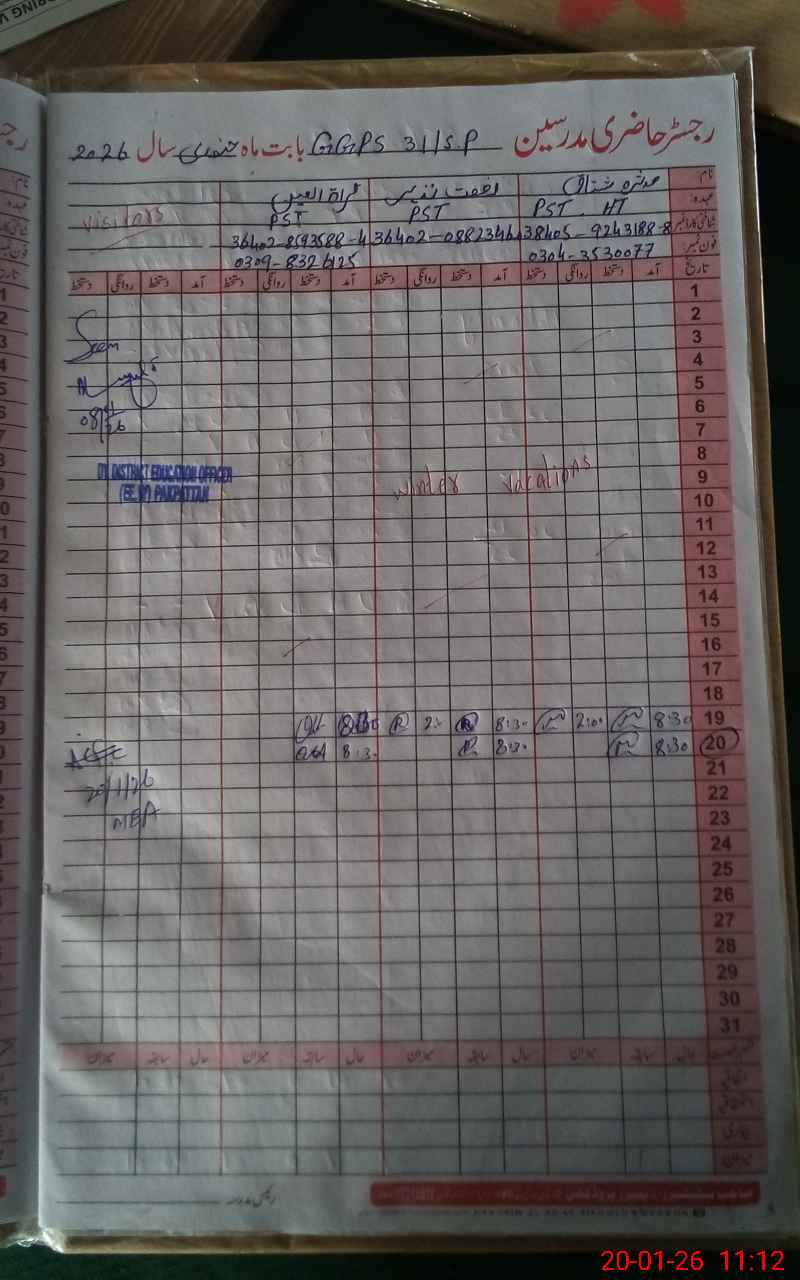 رجسٹر حاضری مدرسین GGPS 31/SP بابت ماہ جنوری سال 2026
نام
مدثرہ مشتاق
رفعت نذیر
قراۃ العین
Visitors
عہدہ
PST HT
PST
PST
شناختی کارڈ نمبر
38405-9243188-8
36402-0882346
36402-8593588-4
فون نمبر
0304-3530077
0309-8326125
تاریخ آمد دستخط روانگی دستخط آمد دستخط روانگی دستخط آمد دستخط روانگی دستخط آمد دستخط روانگی دستخط
1
2
3
4
5
6
7
8
9
10
11
12
13
14
15
16
17
18
19 8:30 2:00 8:30 2:
20 8:30 8:30 8:30
21
22
23
24
25
26
27
28
29
30
31
Winter Vacations
Seen
DY. DISTRICT EDUCATION OFFICER
(EE.W) PAKPATTAN
20/1/26
MEA
حال سابقہ میزان حال سابقہ میزان حال سابقہ میزان حال سابقہ میزان
اتفاقی
میزان
20-01-26 11:12